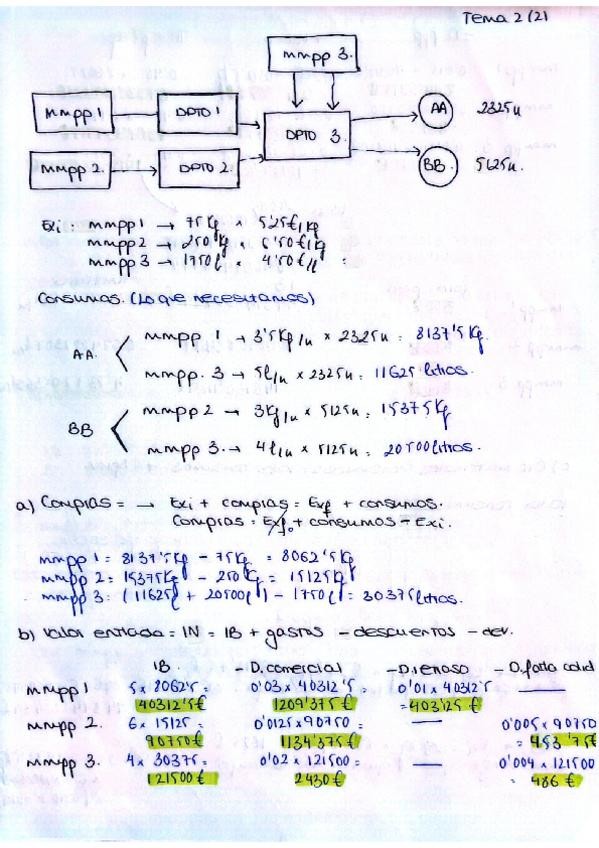 Tema 2 (2)
mmpp 3.
mmpp 1 DPTO 1 DPTO 3. AA 2325u
mmpp 2. DPTO 2. BB. 5625u.
Exi: mmpp 1 → 75 Kg × 5'25€/Kg
mmpp 2 → 250 Kg × 6'50€/Kg
mmpp 3 → 1750 l × 4'50€/l =
Consumos. (Lo que necesitamos)
AA. mmpp 1 → 3'5Kg/u × 2325u = 8137'5Kg.
mmpp. 3 → 5l/u × 2325u = 11625 litros.
BB mmpp 2 → 3Kg/u × 5125u = 15375Kg
mmpp 3. → 4l/u × 5125u = 20500 litros.
a) Compras = → Exi + compras = Exf + consumos.
Compras = Exf + consumos - Exi.
mmpp 1 = 8137'5Kg - 75Kg = 8062'5Kg
mmpp 2 = 15375Kg - 250Kg = 15125Kg
mmpp 3 = (11625l + 20500l) - 1750l = 30375 litros.
b) Valor entrada = IN = IB + gastos - descuentos - dev.
IB - D. comercial - D. - D. falta calid
mmpp 1 5 × 8062'5 = 0'03 × 40312'5 0'01 × 40312'5 —
40312'5€ 1209'375€ = 403'125€
mmpp 2. 6 × 15125 = 0'0125 × 90750 — 0'005 × 90750
90750€ 1134'375€ = 453'75€
mmpp 3. 4 × 30375 = 0'02 × 121500 = — 0'004 × 121500
121500€ 2430€ = 486€